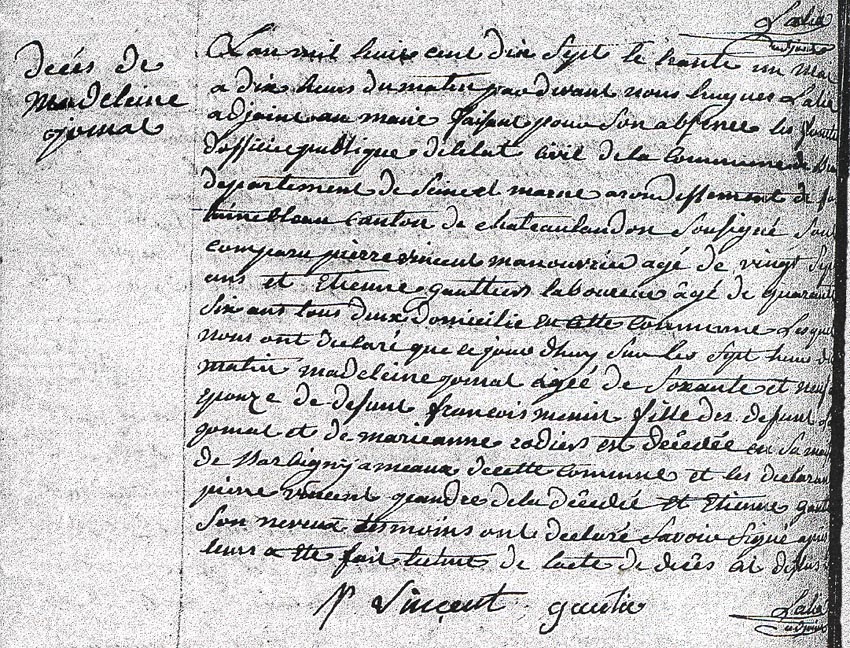 Lalié
adjoint
decés de
madeleine
jomat
Lan mil huit cent dix sept le trante un mar
a dix heurs du matin par divant nous hugues Lalié
adjoint au maire faisant pour son absence les foncti
d'officie publique de letat civil de la commune de
departement de Seine et marne arondissement de fo
tainebleau canton de chateaulandon Sousigné Sont
comparu pierre vincent manouvrier agé de vingt Sept
ans et Etienne gauttier laboureur âgé de quarante
Six ans tous deux domicilié en cette commune Lesquel
nous ont declaré que ce jour dhuy Sur les Sept heure du
matin madeleine jomat agée de Soxante et neuf
epouze de defunt francois menin fille des defunt
jomat et de marieanne rodier est décédée en Sa mai
de Barbigny ameaux de cette commune et les declarant
pierre vincent geandre de la décédée et Etienne gautt
Son neveux tesmoins ont declaré Savoir Signé après
leurs a ette fait lecture de lacte de decés
P Vincent gautié
Lalié
adjoint